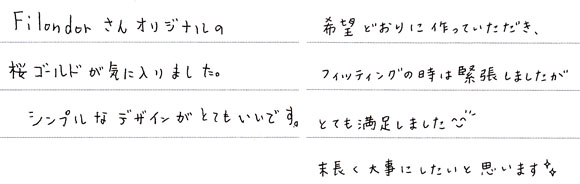 Filondorさんオリジナルの
桜ゴールドが気に入りました。
シンプルなデザインがとてもいいです。
希望どおりに作っていただき、
フィッティングの時は緊張しましたが
とても満足しました
末長く大事にしたいと思います